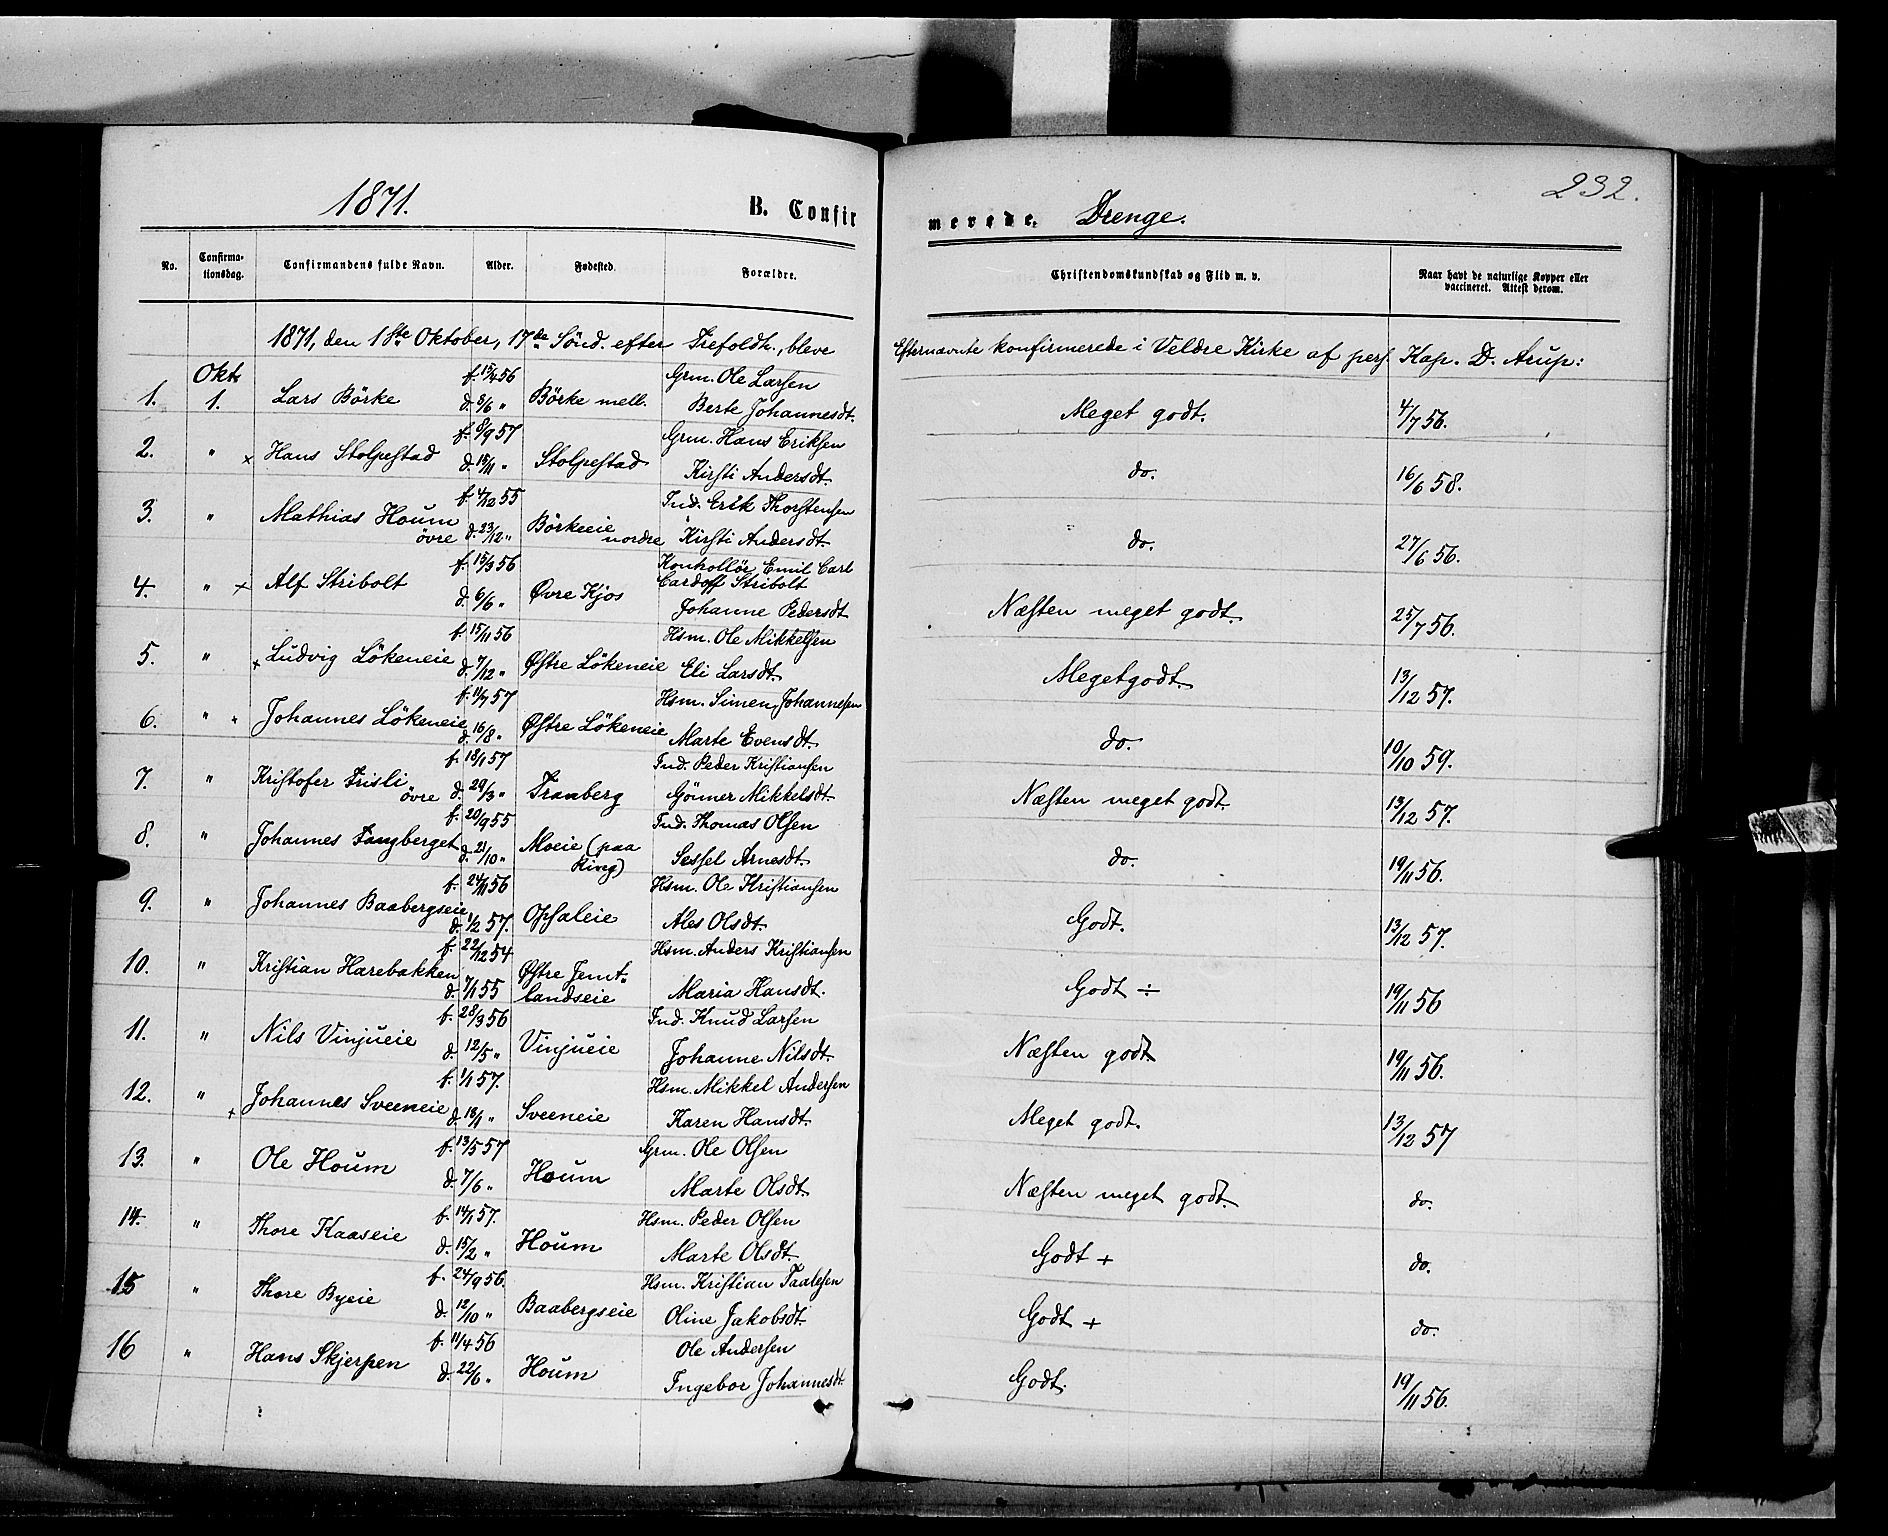 1871.
B. Confir
merede. Drenge.
232.
No.
Confirma-
tionsdag.
Confirmandens fulde Navn.
Alder.
Fødested.
Forældre.
Christendomskundskab og Flid m. v.
Naar havt de naturlige Kopper eller
vaccineret. Attest derom.
1871, den 1ste Oktober, 17de Sønd. efter Trefoldh., bleve Efternævnte konfirmerede i Veldre Kirke af pers. Kap. D. Arup:
Okt.
f. 15/4 56 Grm. Ole Larsen
1. 1. Lars Börke d. 8/6 " Börke mell. Berte Johannesdt. Meget godt. 4/7 56.
f. 8/9 57 Grm. Hans Eriksen
2. " x Hans Stolpestad d. 15/11 " Stolpestad Kirsti Andersdt. do. 16/6 58.
f. 4/12 55 Ind. Erik Thorstensen
3. " Mathias Houm øvre d. 23/12 " Börkeeie nordre Kirsti Andersdt. do. 27/6 56.
f. 15/3 56 Kontrollör Emil Carl
4. " x Alf Stribolt d. 6/6 " Øvre Kjos Cardoff Stribolt
Johanne Pedersdt. Næsten meget godt. 25/7 56.
f. 15/11 56 Hsm. Ole Mikkelsen
5. " x Ludvig Lökeneie d. 7/12 " Østre Lökeneie Eli Larsdt. Megetgodt. 13/12 57.
f. 11/7 57 Hsm. Simen Johannesen
6. " " Johannes Lökeneie d. 16/8 " Østre Lökeneie Marte Evensdt. do. 10/10 59.
f. 18/1 57 Ind. Peder Kristiansen
7. " Kristofer Frisli øvre d. 29/3 " Tranberg Gönner Mikkelsdt. Næsten meget godt. 13/12 57.
f. 20/9 55 Ind. Thomas Olsen
8. " Johannes Tangberget d. 21/10 " Moeie (paa Ring) Sessel Arnesdt. do. 19/11 56.
f. 24/11 56 Hsm. Ole Kristiansen
9. " Johannes Baabergseie d. 1/2 57. Opsaleie Ales Olsdt. Godt. 13/12 57.
f. 22/12 54 Hsm. Anders Kristiansen
10. " Kristian Harebakken d. 7/1 55 Østre Jemt-
landseie Maria Hansdt. Godt ÷ 19/11 56
f. 28/3 56 Ind. Knud Larsen
11. " Nils Vinjueie d. 12/5 " Vinjueie Johanne Nilsdt. Næsten godt. 19/11 56.
f. 1/1 57. Hsm. Mikkel Andersen
12. " x Johannes Sveeneie d. 18/1 " Sveeneie Karen Hansdt. Meget godt. 13/12 57
f. 13/5 57 Grm. Ole Olsen
13. " Ole Houm d. 7/6 " Houm Marte Olsdt. Næsten meget godt. do.
f. 14/1 57. Hsm. Peder Olsen
14. " Thore Kaaseie d. 15/2 " Houm Marte Olsdt. Godt + do.
f. 24/9 56. Hsm. Kristian Taalesen
15 " Thore Byeie d. 12/10 " Baabergseie Oline Jakobsdt. Godt + do.
f. 11/4 56 Ole Andersen
16 " Hans Skjerpen d. 22/6 " Houm Ingebor Johannesdt. Godt. 19/11 56.